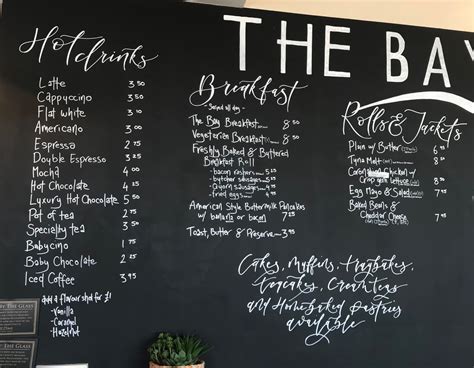 THE BAY
Hot drinks
Latte 3 50
Cappyccino 3 50
Flat white 3 50
Americano 3 30
Espresso 2 75
Double Espresso 3 25
Mocha 4 00
Hot Chocolate 4 25
Luxury Hot Chocolate 4 95
Pot of tea 2 85
Specialty tea 3 00
Babycino 1 00
Baby Chocolate 2 00
Iced Coffee 3 95
add a flavour shot for £1
- Vanilla
- Caramel
- Hazelnut
Breakfast
Served all day
The Bay Breakfast 8 50
Vegetarian Breakfast 8 50
Freshly Baked & Buttered
Breakfast Roll
- bacon rashers
- butcher sausages
- Quorn sausages
- fried eggs
American Style Buttermilk Pancakes
w/ banana or bacon 7 25
Toast, Butter & Preserve 3 95
Rolls & Jackets
Plain w/ Butter
Tuna Mayo
Chicken w/
Egg Mayo & Salad
Baked Beans &
Cheddar Cheese
Cakes, Muffins, Traybakes,
Teacakes, Cream Teas
and Homebaked Pastries
available
BY THE GLASS
BY THE GLASS